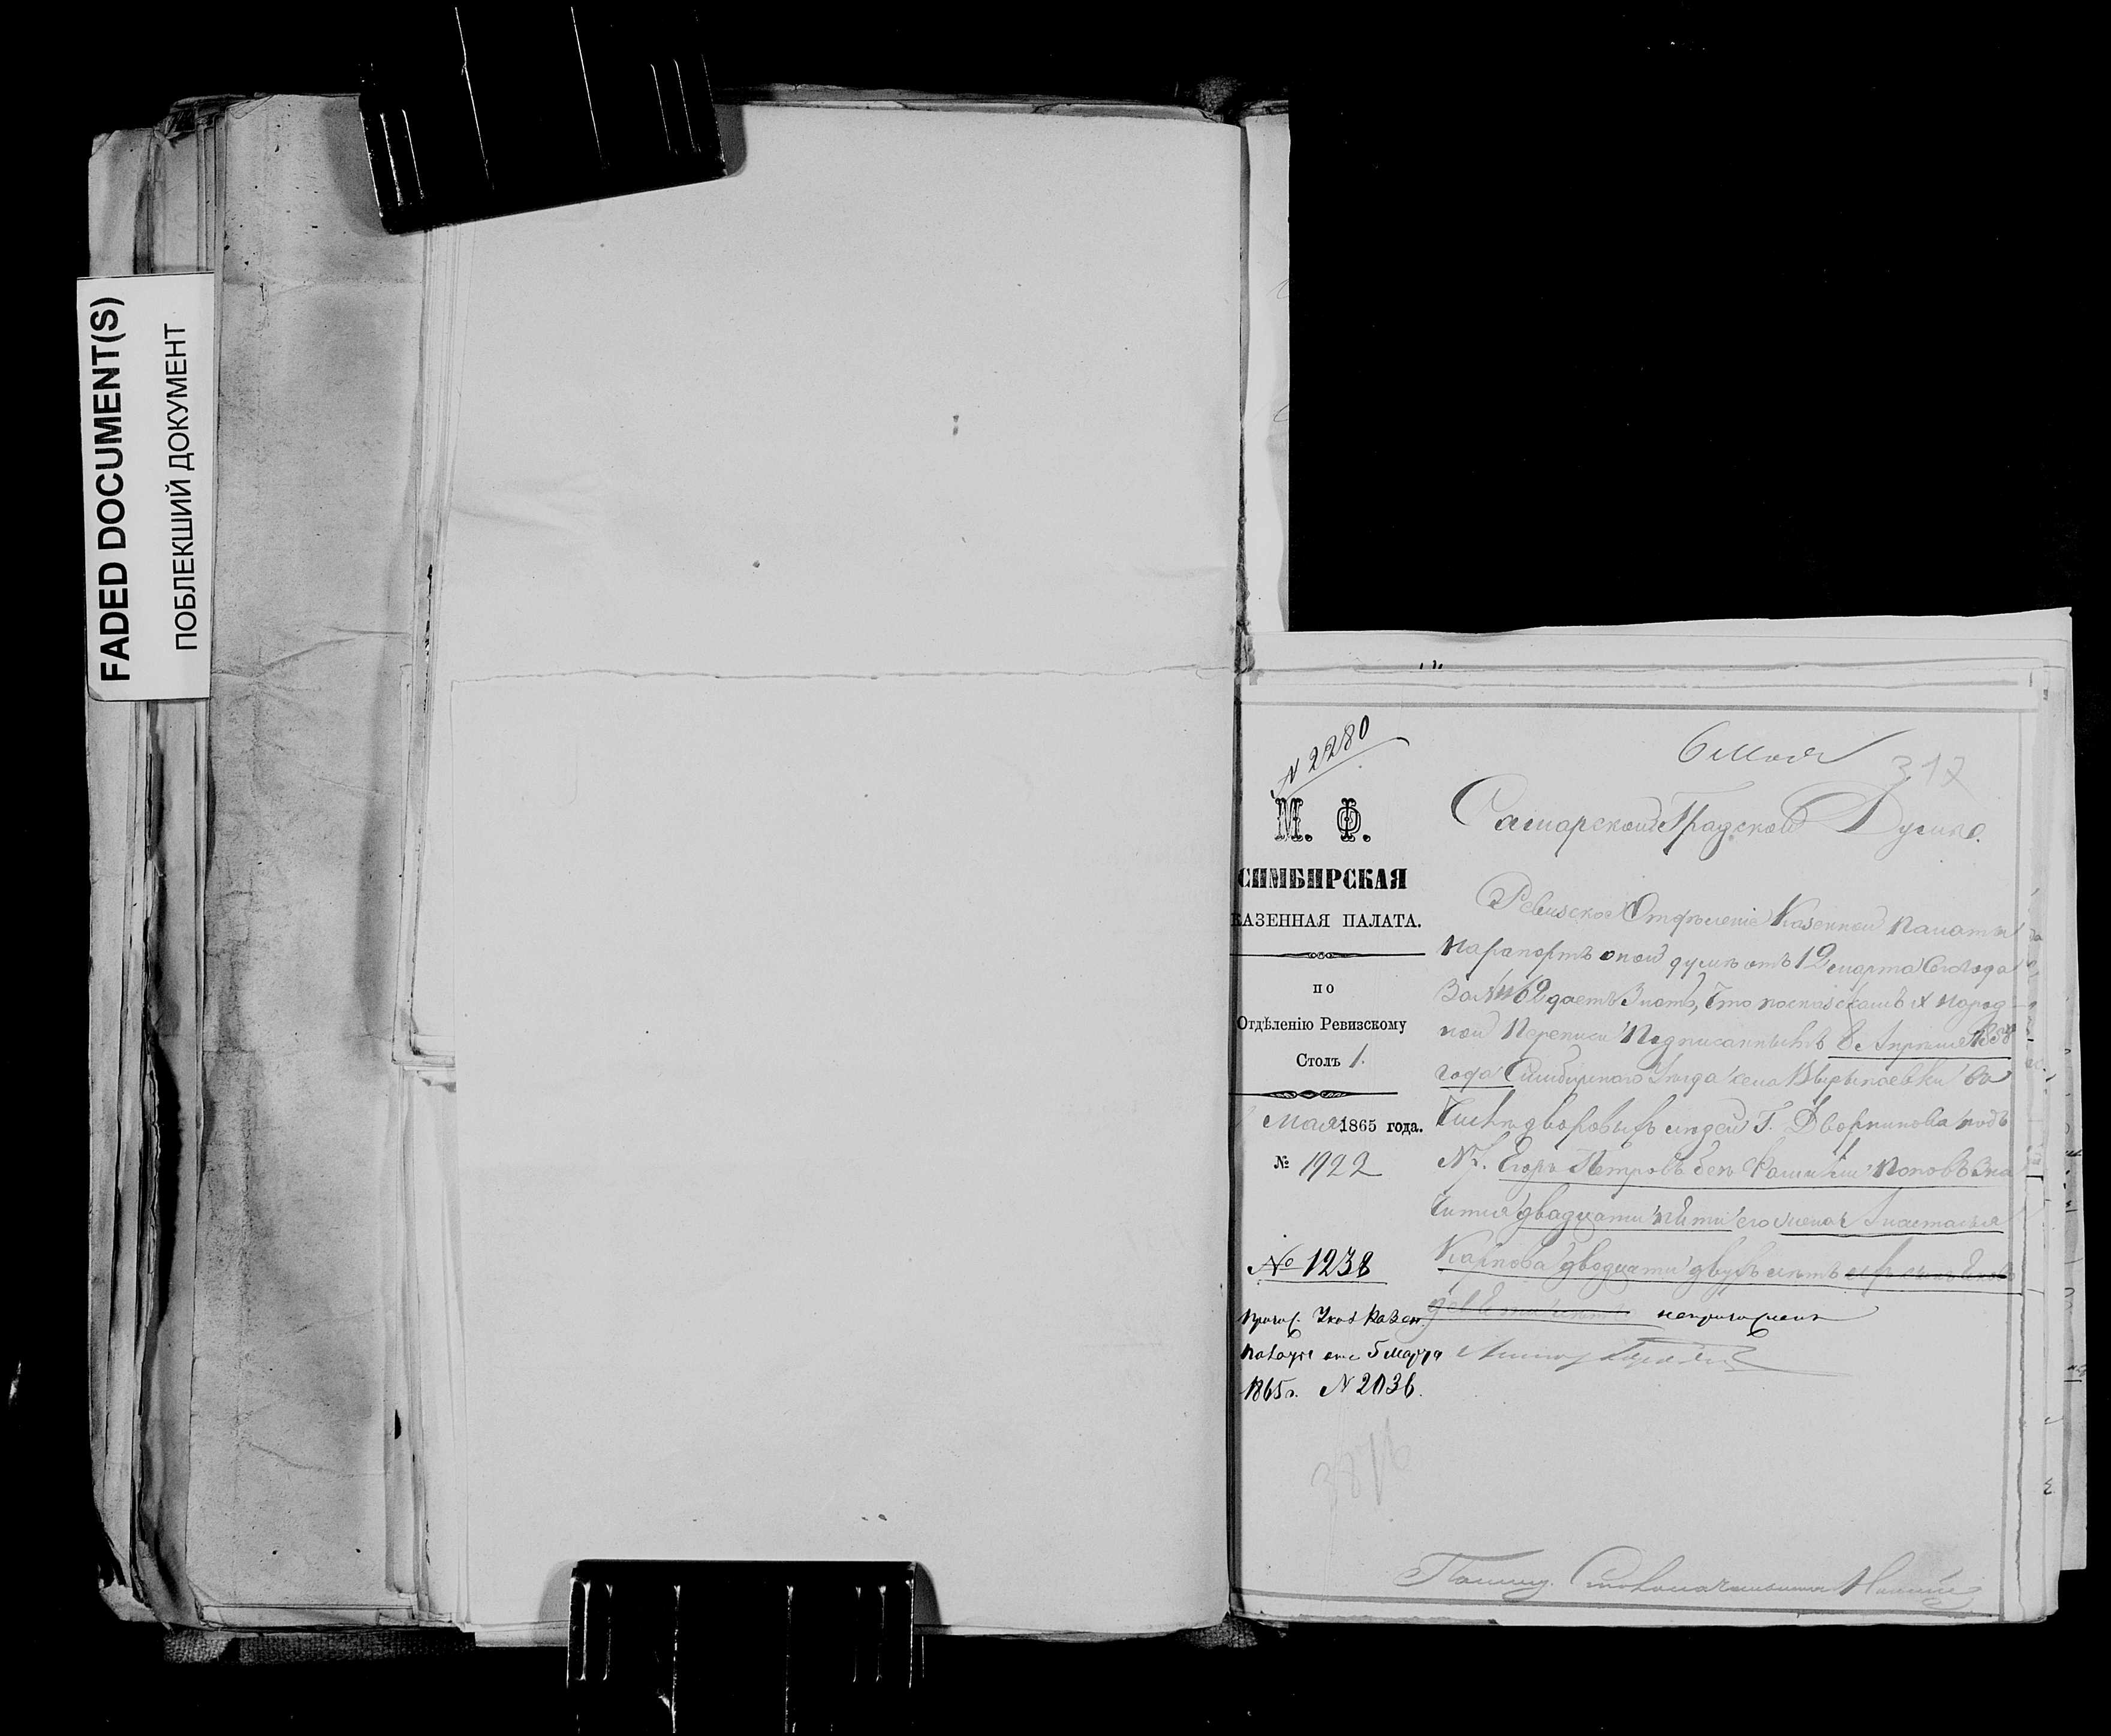 FADED DOCUMENT(S)
ПОБЛЕКШИЙ ДОКУМЕНТ
N 2280
6 мая
317
М. Ф.
СИМБИРСКАЯ
КАЗЕННАЯ ПАЛАТА.
по
Отдѣленію Ревизскому
Столъ 1.
Мая 1865 года.
№ 1922
№ 1238
Казен.
5 марта
1865 г. N 2036.
Самарской Градской Думѣ.
Ревизское Отдѣленіе Казенной Палаты
на рапортъ оной думѣ отъ 12 марта года
за № даетъ знать, что по сказкамъ X народ
ной переписи подписанныхъ въ Апрѣлѣ 1858
года Симбирскаго Уѣзда села Вырыпаевки въ
числѣ дворовыхъ людей Г. Дворникова подъ
№ Егоръ Петровъ безъ фамиліи Поповъ зна
чится двадцати пяти его жена Анастасья
Карпова двадцати двухъ лѣтъ
Столоначальника